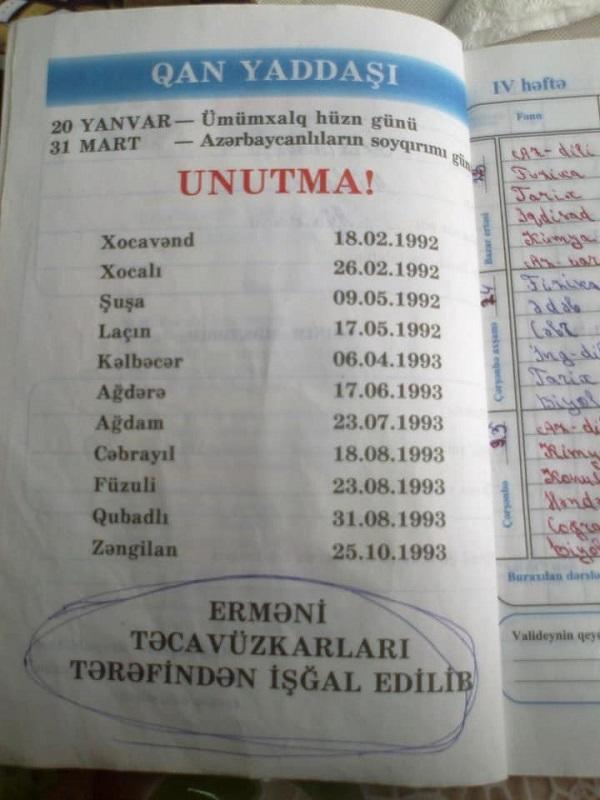 QAN YADDAŞI
20 YANVAR — Ümümxalq hüzn günü
31 MART — Azərbaycanlıların soyqırımı gün
UNUTMA!
Xocavənd 18.02.1992
Xocalı 26.02.1992
Şuşa 09.05.1992
Laçın 17.05.1992
Kəlbəcər 06.04.1993
Ağdərə 17.06.1993
Ağdam 23.07.1993
Cəbrayıl 18.08.1993
Füzuli 23.08.1993
Qubadlı 31.08.1993
Zəngilan 25.10.1993
ERMƏNİ
TƏCAVÜZKARLARI
TƏRƏFİNDƏN İŞĞAL EDİLİB
IV həftə
Fənn
Bazar ertəsi
Az-dili
Fizika
Tarix
İqdisad
Kimya
Çərşənbə axşamı
24
Fizika
Ədəb
Cəbr
İng-dil
Tarix
Biyol
Çərşənbə
25
Az-di
Kimy
Həndə
Coğra
Biyol
Buraxılan dərslə
Valideynin qeyd